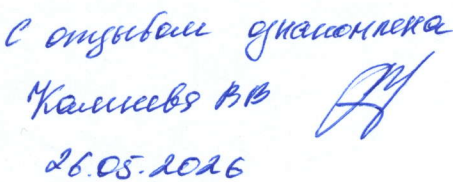 С отзывом ознакомлена
Камнева ВВ
26.05.2026